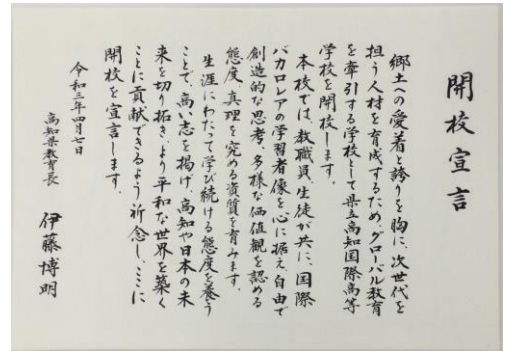 開校宣言
郷土への愛着と誇りを胸に、次世代を
担う人材を育成するため、グローバル教育
を牽引する学校として県立高知国際高等
学校を開校します。
本校では、教職員、生徒が共に、国際
バカロレアの学習者像を心に据え、自由で
創造的な思考、多様な価値観を認める
態度、真理を究める資質を育みます。
生涯にわたって学び続ける態度を養う
ことで、高い志を掲げ、高知や日本の未
来を切り拓き、より平和な世界を築く
ことに貢献できるよう祈念し、ここに
開校を宣言します。
令和三年四月七日
高知県教育長 伊藤博明